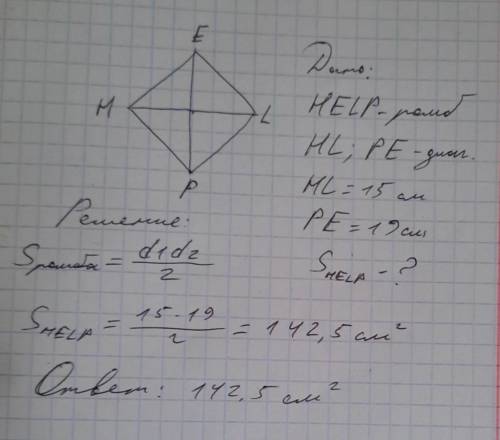 E
H
L
P
Дано:
HELP - ромб
HL; PE - диаг.
HL = 15 см
PE = 19 см
S HELP - ?
Решение:
S ромба = d1d2/2
S HELP = 15·19/2 = 142,5 см²
Ответ: 142,5 см²